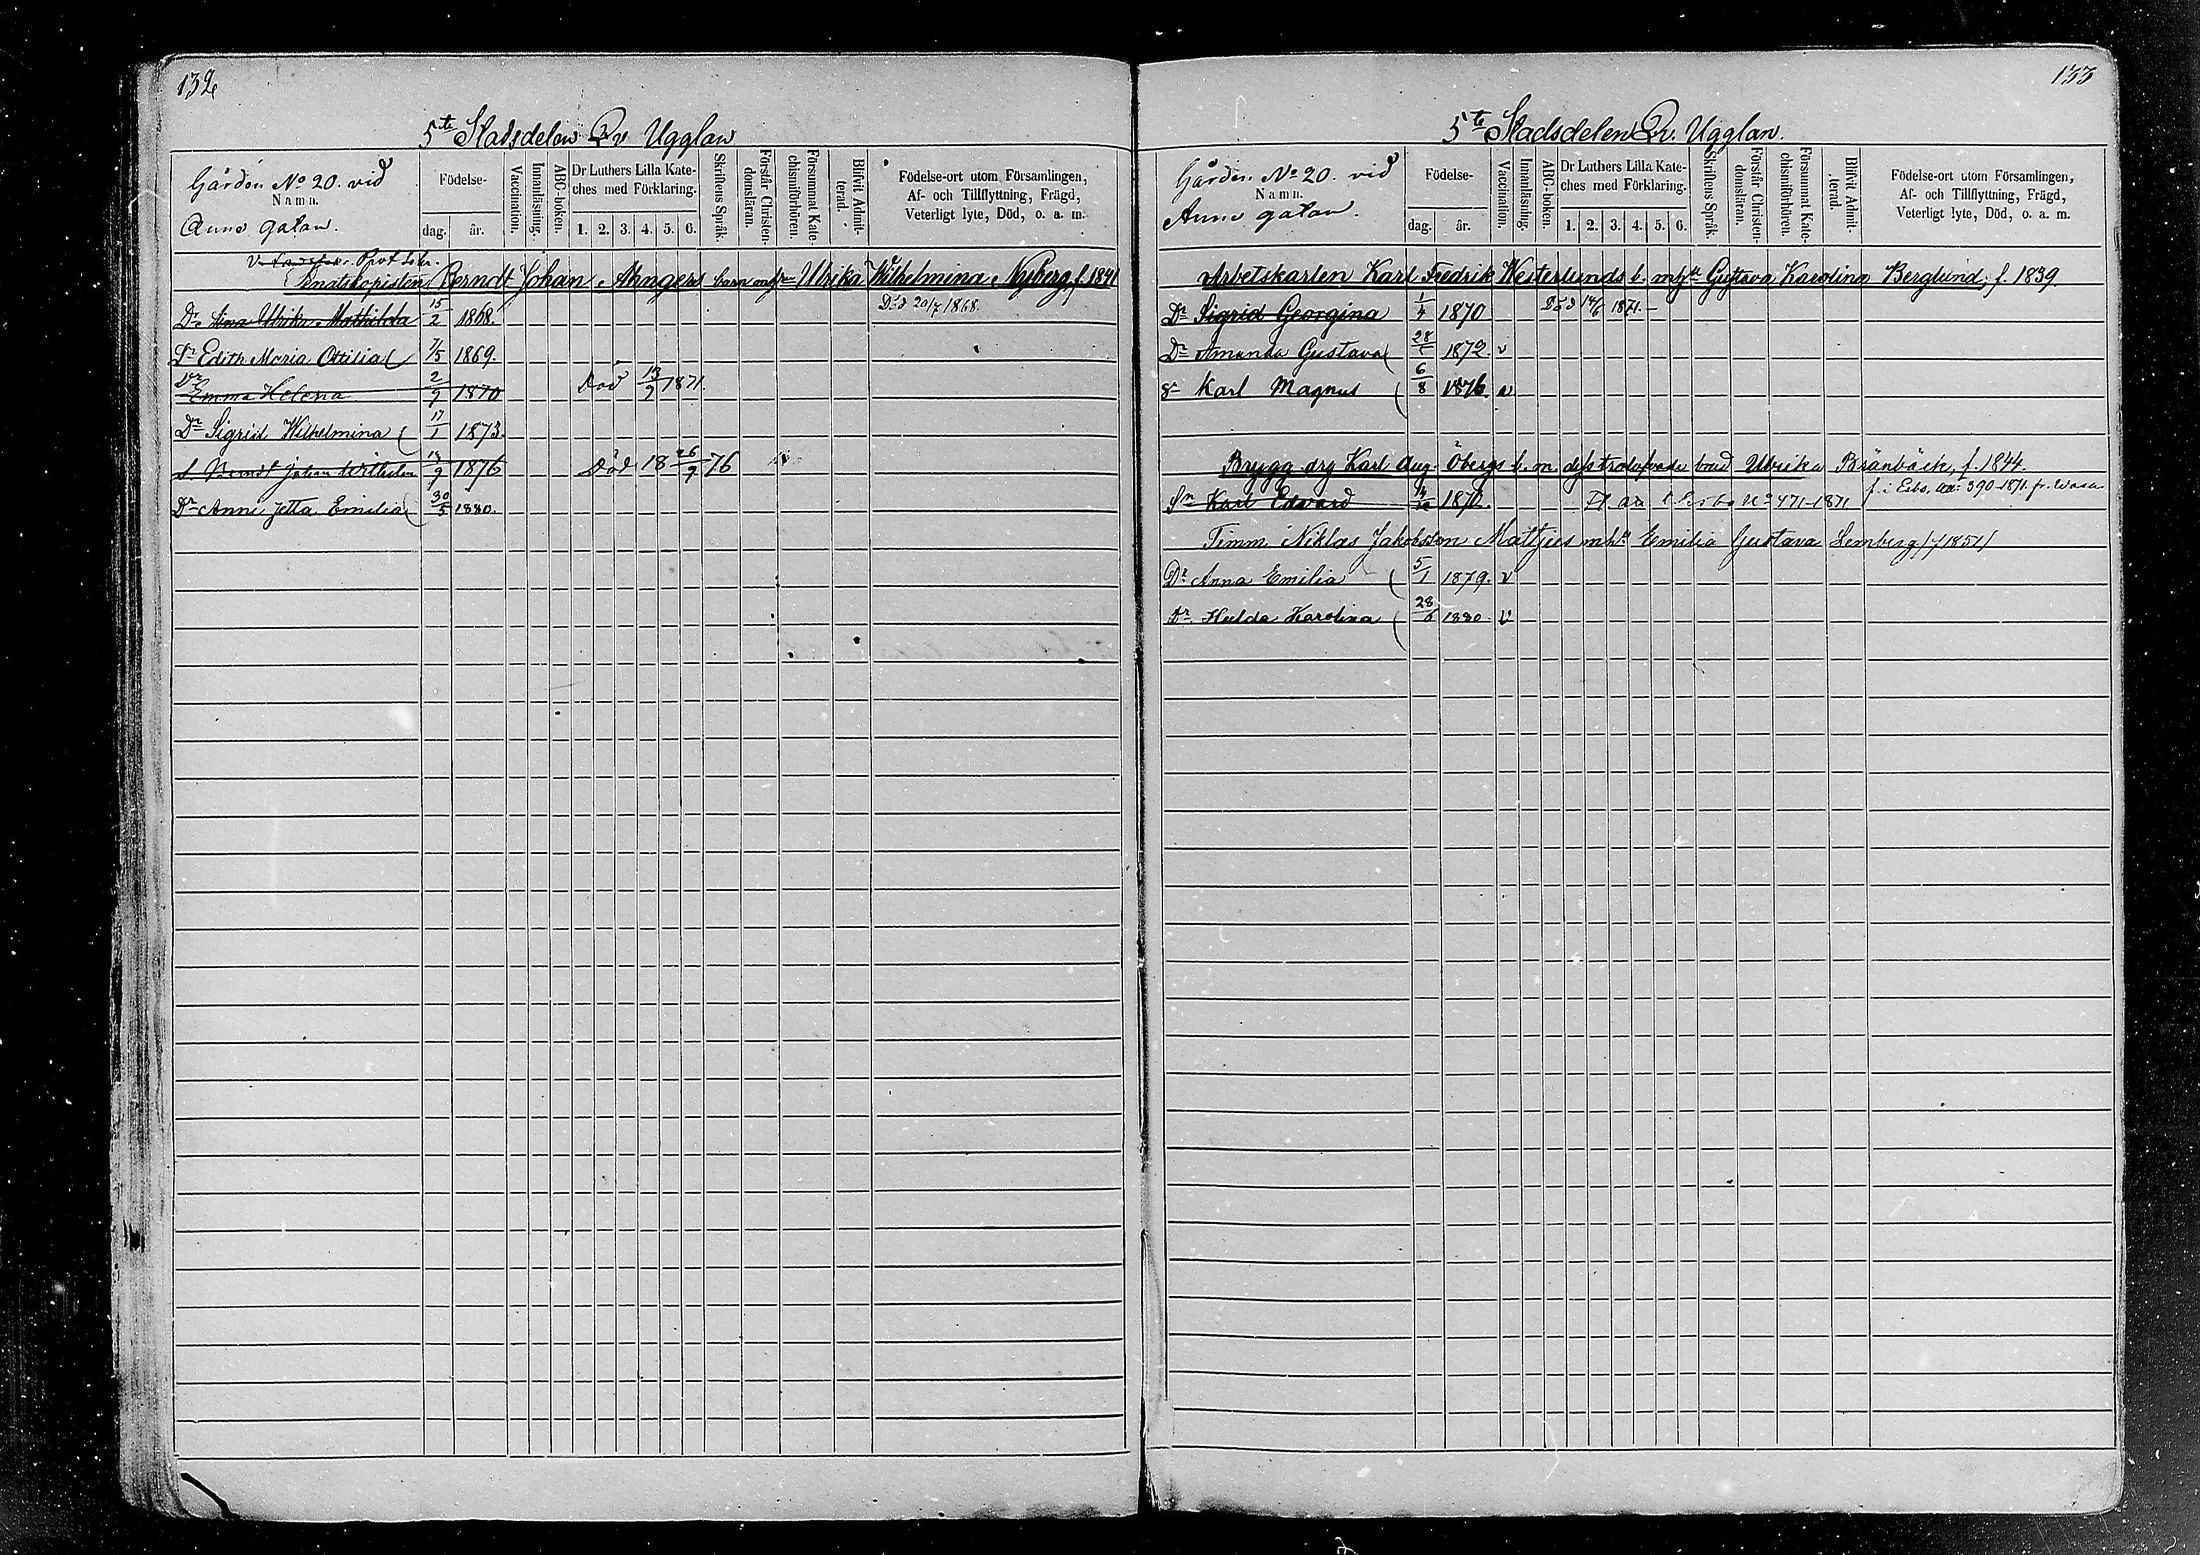 132
5te Stadsdelen Qv Ugglan
Gården No 20. vid
Namn.
Anne gatan.
Födelse-
dag. år.
Vaccination.
Innanläsning.
ABC-boken.
Dr Luthers Lilla Kate-
ches med Förklaring.
1. 2. 3. 4. 5. 6.
Skriftens Språk.
Förstår Christen-
domsläran.
Försummat Kate-
chismiförhören.
Blifvit Admit-
terad.
Födelse-ort utom Församlingen,
Af- och Tillflyttning, Frägd,
Veterligt lyte, Död, o. a. m.
Senatskopisten Berndt Johan Ahngers barn m h Ulrika Wilhelmina Nyberg, f. 1841
Dr Ulrika Mathilda 15/2 1868. Död 20/7 1868.
Dr Edith Maria Ottilia 7/5 1869.
Dr Emma Helena 2/9 1870 Död 13/9 1871
Dr Sigrid Wilhelmina 17/1 1873.
S. Berndt Johan Wilhelm 13/9 1876 Död 18 26/9 76
Dr Anni Jetta Emilia 30/5 1880.
133
5te Stadsdelen Qv. Ugglan.
Gården No 20. vid
Namn.
Anne gatan.
Födelse-
dag. år.
Vaccination.
Innanläsning.
ABC-boken.
Dr Luthers Lilla Kate-
ches med Förklaring.
1. 2. 3. 4. 5. 6.
Skriftens Språk.
Förstår Christen-
domsläran.
Försummat Kate-
chismiförhören.
Blifvit Admit-
terad.
Födelse-ort utom Församlingen,
Af- och Tillflyttning, Frägd,
Veterligt lyte, Död, o. a. m.
Arbetskarlen Karl Fredrik Westerlunds b. m h Gustava Karolina Berglund, f. 1839.
Dr Sigrid Georgina 1/4 1870 Död 14/6 1871.
Dr Amanda Gustava 28/5 1872. v
Sn Karl Magnus 6/8 1876. v
Brygg. drg Karl Aug. Öbergs b. m. Ulrika Bränbäck, f. 1844.
Sn Karl Edvard 1870. Fl. t. Esbo No 471-1871 f. i Esbo, 390-1871. fr. Wasa
Timm. Niklas Jakobsson Mattjus m h Emilia Gustava Lemberg /f 1851/
Dr Anna Emilia 5/1 1879. v
Dr Hulda Karolina 28/6 1880. v